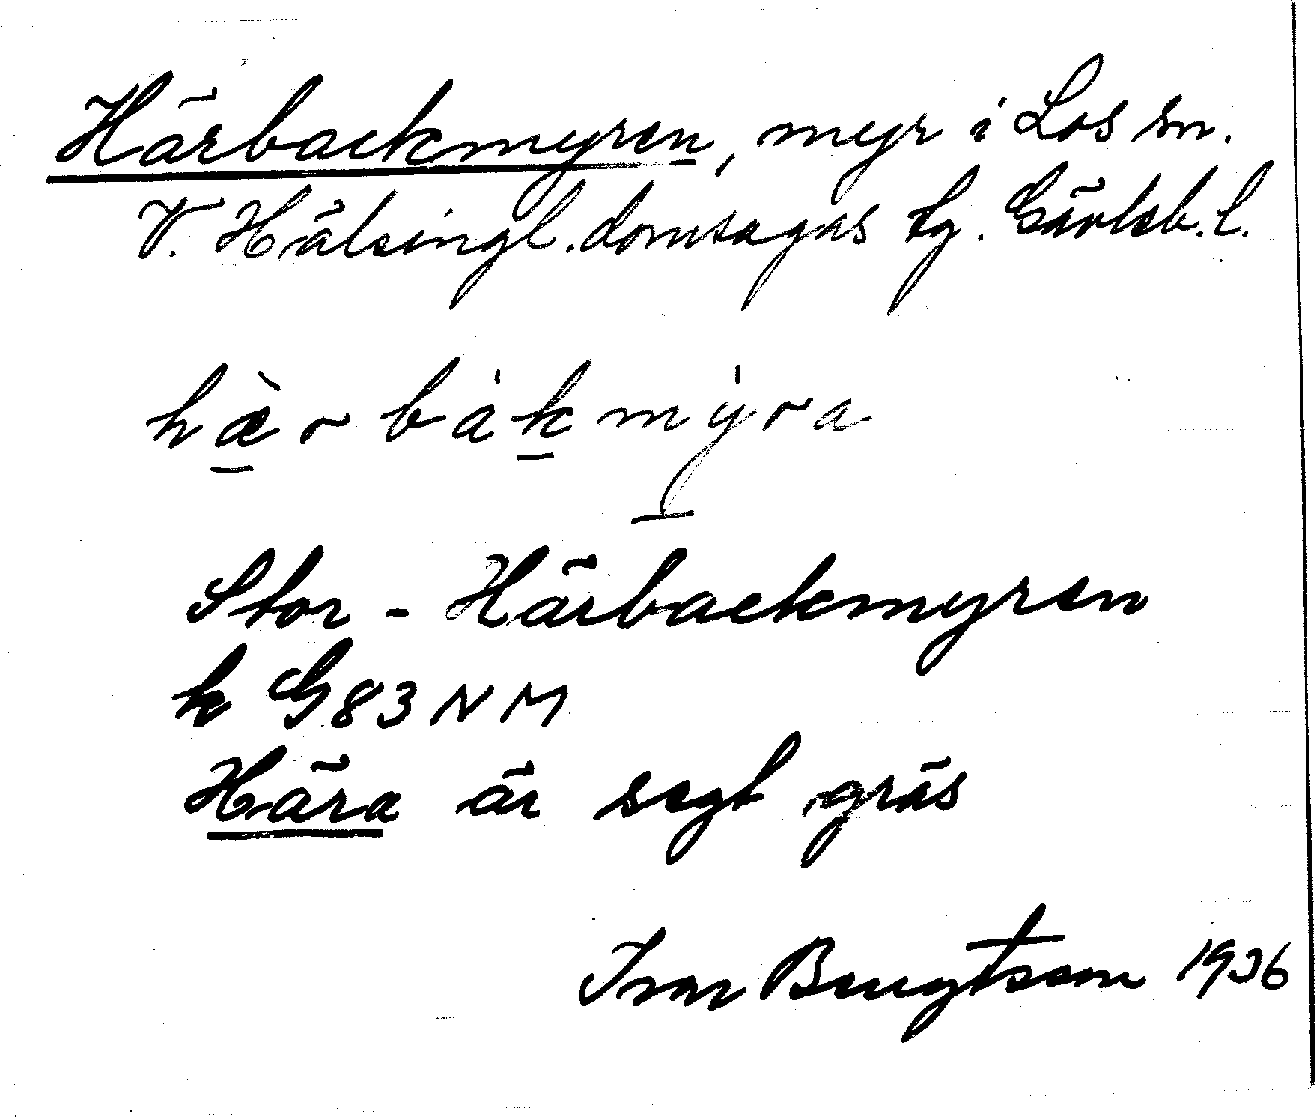 Härbackmyren, myr i Los sn.
V. Hälsingl. domsagas tg. Gävleb. l.
hæ̀r båkmýra
Stor-Härbackmyren
k G83NM
Hära är segt gräs
Ivar Bengtsson 1936